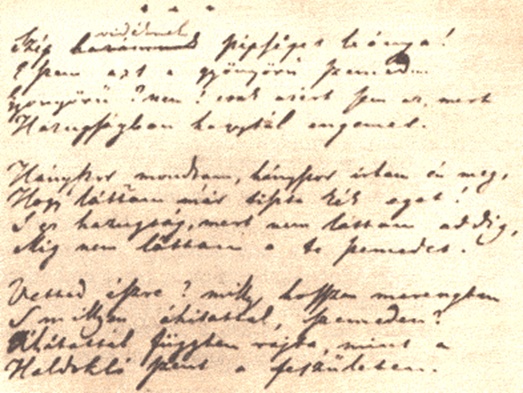 * * *
vidéknek
Szép hazámnak szépséges leánya!
E szem azt a gyönyörü szemed...
Gyönyörü? nem! csak azért sem az, mert
Hazugságban hagytál engemet.
Hányszor mondtam, hányszor irtam én meg,
Hogy láttam már tiszta kék eget!
S ez hazugság, mert nem láttam addig,
Mig nem láttam a te szemedet.
Vetted észre? mily hosszan merengtem
S milyen áhitattal, szemeden?
Áhitattal függtem rajta, mint a
Haldokló szent a feszületen.